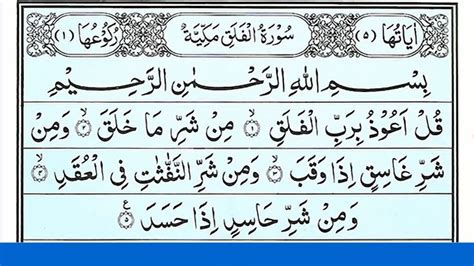 اٰيَاتُهَا (٥) سُوْرَةُ الْفَلَقِ مَكِّيَّةٌ رُكُوْعُهَا (١)
بِسْمِ اللّٰهِ الرَّحْمٰنِ الرَّحِيْمِ
قُلْ اَعُوْذُ بِرَبِّ الْفَلَقِ ۙ‏﴿۱﴾ مِنْ شَرِّ مَا خَلَقَ ۙ‏﴿۲﴾ وَمِنْ
شَرِّ غَاسِقٍ اِذَا وَقَبَ ۙ‏﴿۳﴾ وَمِنْ شَرِّ النَّفّٰثٰتِ فِى الْعُقَدِ ۙ‏﴿۴﴾
وَمِنْ شَرِّ حَاسِدٍ اِذَا حَسَدَ ‏﴿۵﴾ ع